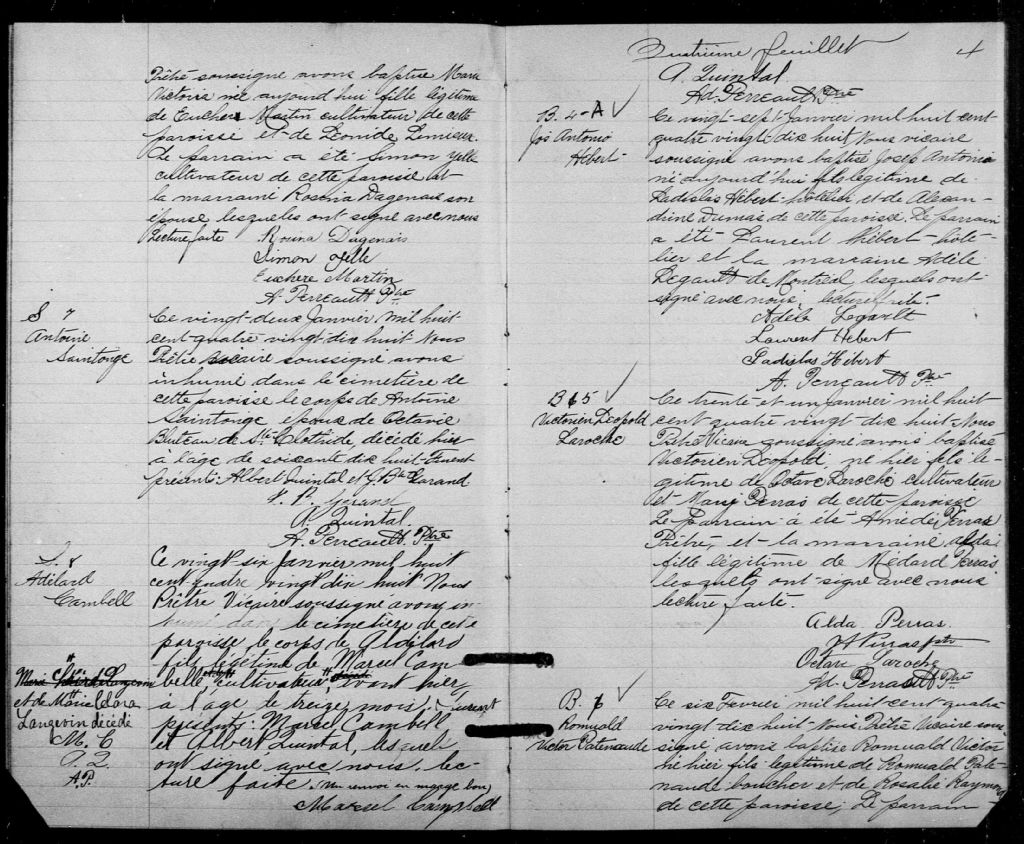 Prêtre soussigné avons baptisé Marie
Victoria née aujourd'hui fille légitime
de Euchere Martin cultivateur de cette
paroisse et de Léonide Lemieux.
Le parrain a été Simon Yelle
cultivateur de cette paroisse et
la marraine Rosina Dagenais son
épouse lesquels ont signé avec nous
Lecture faite Rosina Dagenais
Simon Yelle
Euchere Martin
A. Perreault Ptre
S 7
Antoine
Saintonge
Ce vingt-deux Janvier mil huit
cent quatre vingt dix huit Nous
Prêtre vicaire soussigné avons
inhumé dans le cimetière de
cette paroisse le corps de Antoine
Saintonge époux de Octavie
Bluteau de Ste Clothilde, décédé hier
à l'âge de soixante dix huit. Furent
présents: Albert Quintal et J. Bte
A. Quintal
A. Perreault Ptre
S. 8
Adélard
Cambell
et de Marie Clara
Langevin décédé
M. C
A. Q.
A.P.
Ce vingt six Janvier mil huit
cent quatre vingt dix huit Nous
Prêtre Vicaire soussigné avons in-
humé dans le cimetière de cette
paroisse le corps de Adélard
fils légitime de Marcel Cam
bell, cultivateur, avant hier
à l'âge de treize mois. Furent
présents: Marcel Cambell
et Albert Quintal, lesquels
ont signé avec nous. lec-
ture faite. (un renvoi en marge bon)
Marcel Campbell
Quatrième feuillet 4
A. Quintal.
Ad. Perreault Ptre
B. 4-A
Jos Antonio
Hébert
Ce vingt-sept Janvier mil huit cent
quatre vingt dix huit Nous vicaire
soussigné avons baptisé Josep Antonio
né aujourd'hui fils légitime de
Ladislas Hébert hôtelier et de Alexan-
drine Dumas de cette paroisse. Le parrain
a été Laurent Hébert hôte-
lier et la marraine Adèle
Legault de Montréal lesquels ont
signé avec nous, lecture faite
Adèle Legault
Laurent Hébert
Ladislas Hébert
A. Perreault Ptre
B 5
Victorien Léopold
Laroche
Ce trente et un Janvier mil huit
cent quatre vingt dix huit Nous
Prêtre Vicaire soussigné avons baptisé
Victorien Léopold né hier fils lé-
gitime de Octave Laroche cultivateur
et Marie Perras de cette paroisse
Le parrain a été Amédé Perras
Prêtre, et la marraine, Alda
fille légitime de Médard Perras
lesquels ont signé avec nous
lecture faite.
Alda Perras.
A Perras ptre
Octave Laroche
Ad. Perreault Ptre
B. 6
Romuald
Victor Patenaude
Ce six Février mil huit cent quatre
vingt dix huit Nous Prêtre Vicaire sous-
signé, avons baptisé Romuald Victor
né hier fils légitime de Romuald Pate-
naude boucher et de Rosalie Raymond
de cette paroisse; Le parrain